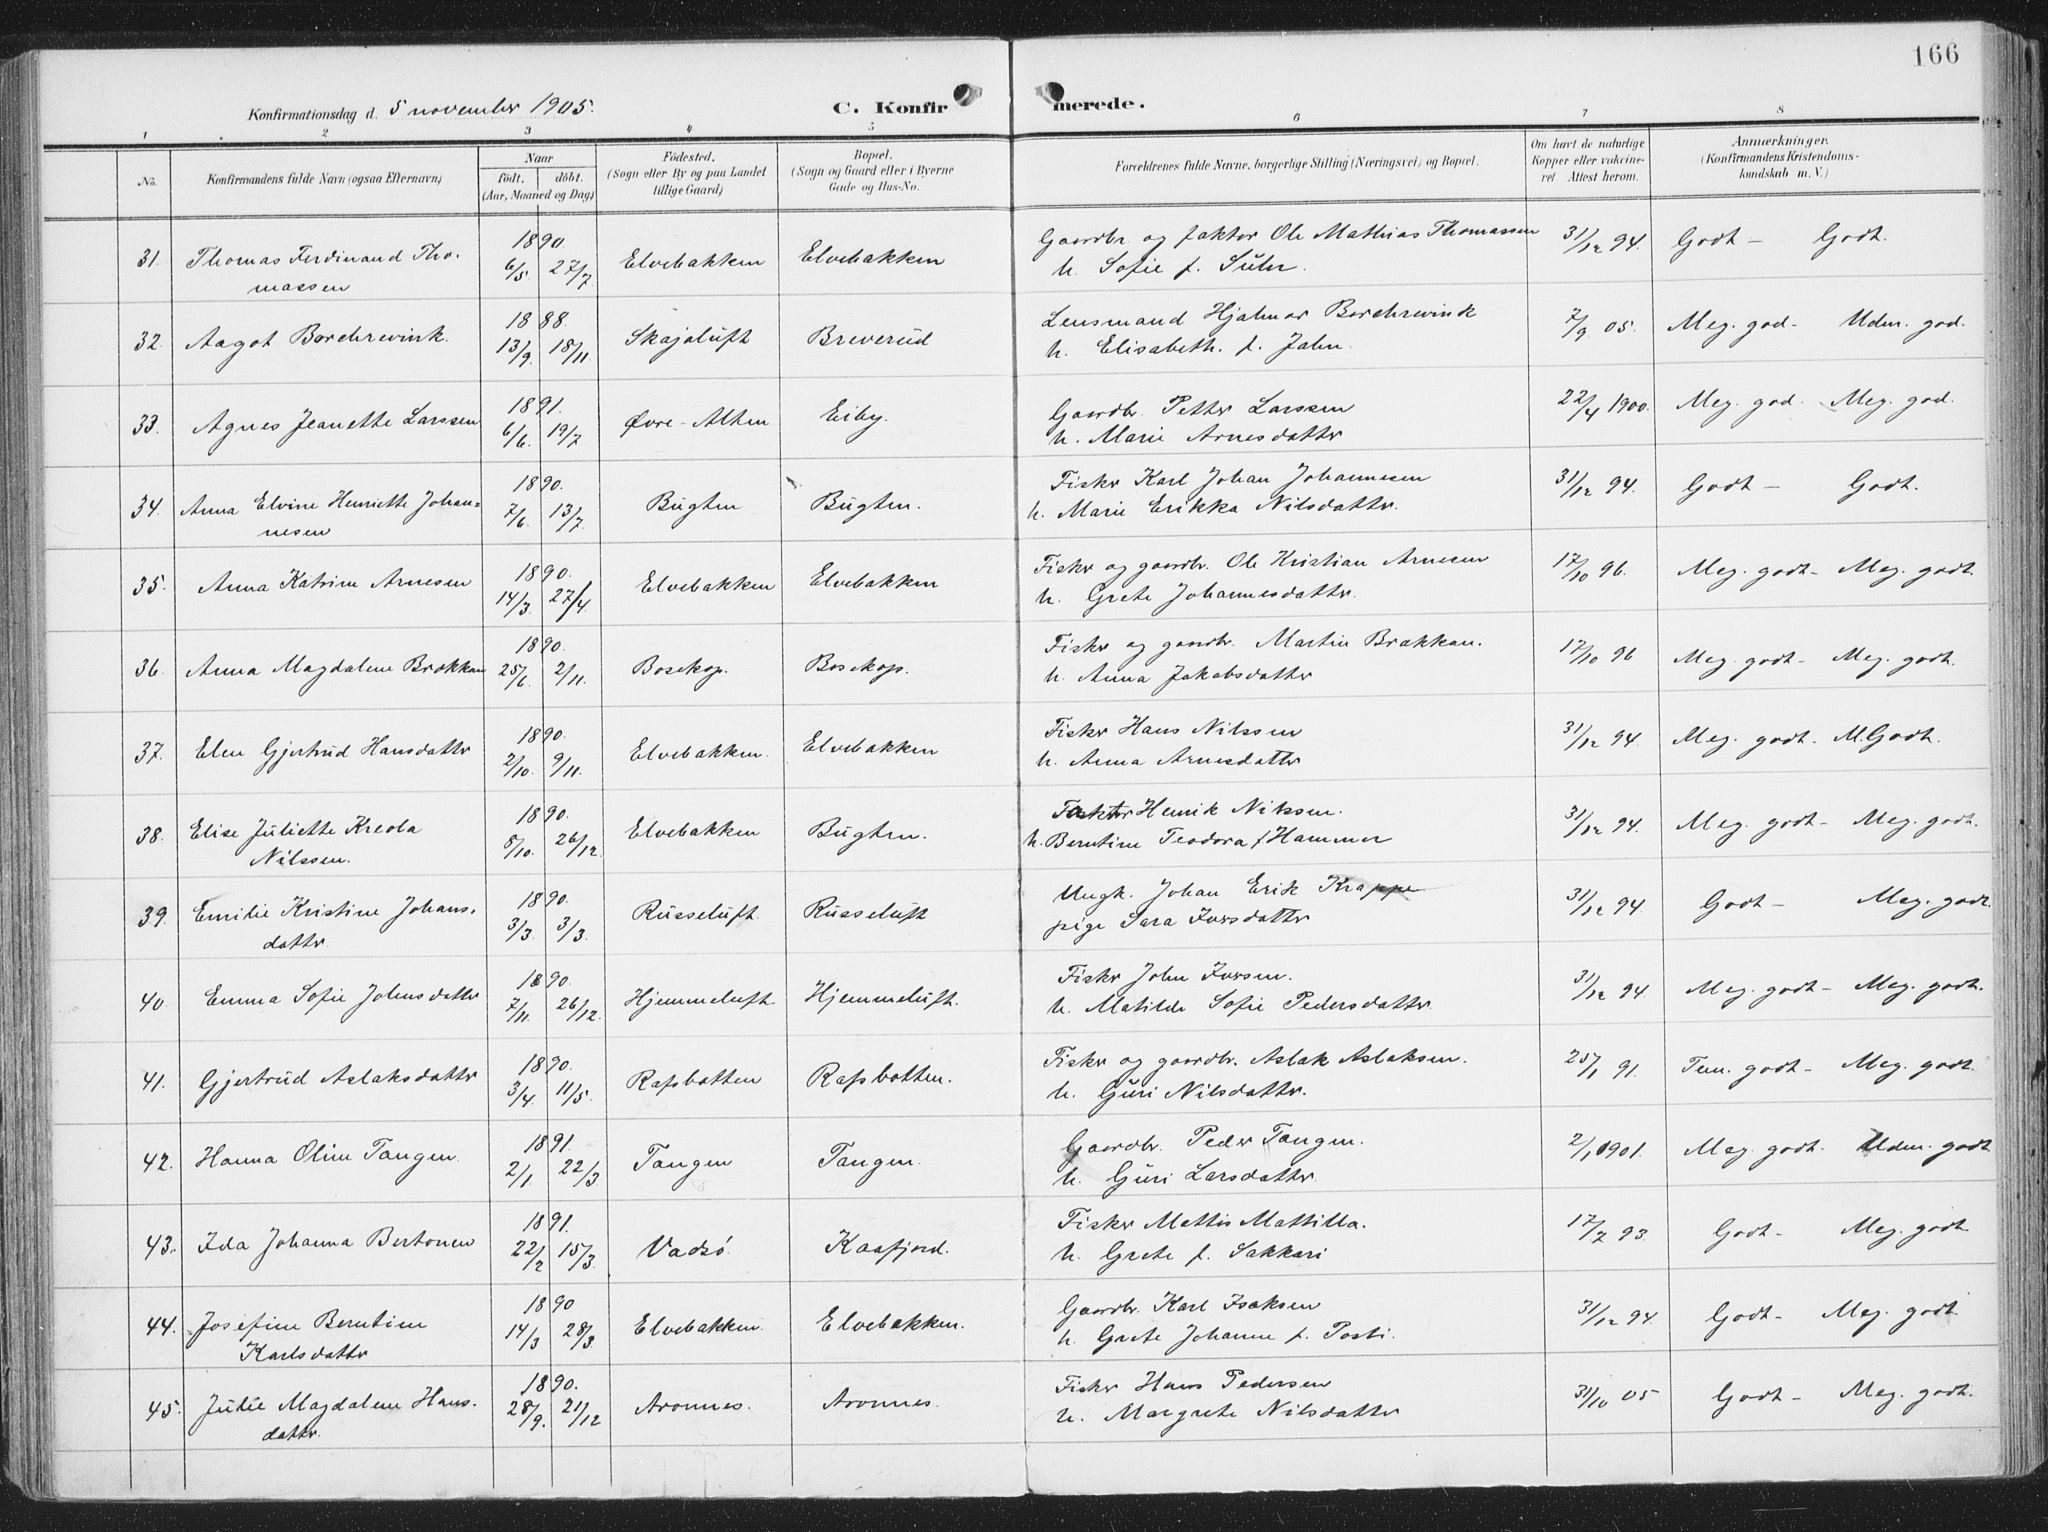 166
Konfirmationsdag d. 5 november 1905. C. Konfirmerede.
1 2 3 4 5 6 7 8
No. Konfirmandens fulde Navn (ogsaa Efternavn) Naar født. døbt. (Aar, Maaned og Dag) Fødested. (Sogn eller By og paa Landet tillige Gaard) Bopæl. (Sogn og Gaard eller i Byerne Gade og Hus-No. Forældrenes fulde Navne, borgerlige Stilling (Næringsvei) og Bopæl. Om havt de naturlige Kopper eller vaccineret Attest herom. Anmærkninger. (Konfirmandens Kristendomskundskab m. V.)
1890.
31. Thomas Ferdinand Tho- 6/5 27/7 Elvebakken Elvebakken Gaardbr og faktor Ole Mathias Thomassen 31/12 94. Godt - Godt.
massen h. Sofie f. Suhr.
1888.
32. Aagot Borchrevink. 13/9 18/11. Skajaluft Breverud Lensmand Hjalmar Borchrevink 7/9 05. Meg. god - Udm. god.
h. Elisabeth. f. Jahn.
1891.
33. Agnes Jeanette Larssen 6/6. 19/7 Øvre-Alten Eiby. Gaardbr. Petter Larssen 22/4 1900. Meg. god. Meg. god.
h. Marie Arnesdatter
1890.
34. Anna Elvine Henriette Johan= 7/6. 13/7 Bugten Bugten. Fisker Karl Johan Johannesen 31/12 94. Godt - Godt.
nesen h. Marie Erikka Nilsdatter.
1890.
35. Anna Katrine Arnesen 14/3. 27/4. Elvebakken Elvebakken Fisker og gaardbr. Ole Kristian Arnesen 17/10 96. Meg. godt - Meg. godt.
h. Grete Johannesdatter.
1890.
36. Anna Magdalene Brækkan 25/6. 2/11. Bosekop. Bosekop. Fisker og gaardbr. Martin Brækkan. 17/10 96 Meg. godt - Meg. godt.
h. Anna Jakobsdatter
1890.
37. Elen Gjertrud Hansdatter 2/10. 9/11. Elvebakken. Elvebakken Fisker Hans Nilssen 31/12 94. Meg. godt. M.Godt.
h. Anna Arnesdatter
1890.
38. Elise Juliette Kreola 8/10. 26/12. Elvebakken Bugten. Faktor Henrik Nilssen. 31/12 94. Meg. godt - Meg. godt.
Nilssen. h. Berntine Teodora f Hammer
1890.
39. Emilie Kristine Johans- 3/3. 3/3. Russeluft Russeluft Ungk. Johan Erik Krappe 31/12 94. Godt - Meg. godt.
datter. pige Sara Iversdatter
1890.
40. Emma Sofie Johnsdatter 7/11. 26/12. Hjemmeluft Hjemmeluft. Fisker John Iversen. 31/12 94 Meg. godt - Meg. godt.
h. Matilde Sofie Pedersdatter.
1890.
41. Gjertrud Aslaksdatter 3/4. 11/5. Rafsbotten Rafsbotten. Fisker og gaardbr. Aslak Aslaksen. 25/1 91. Tem. godt - Meg. godt.
h. Guri Nilsdatter.
1891.
42. Hanna Oline Tangen. 2/1. 22/3. Tangen Tangen. Gaardbr. Peder Tangen. 2/1 1901. Meg. godt. Udm. godt
h. Guri Larsdatter.
1891.
43. Ida Johanna Bertonen 22/2 15/3. Vadsø. Kaafjord. Fisker Mattis Mattilla. 17/7 93. Godt - Meg. godt.
h. Grete f. Sakkari
1890
44. Josefine Berntine 14/3 28/3. Elvebakken. Elvebakken. Gaardbr. Karl Isaksen 31/12 94. Godt - Meg. godt.
Karlsdatter h. Grete Johanne f. Posti.
1890.
45. Julie Magdalene Hans- 28/9. 21/12 Aronnes. Aronnes. Fisker Hans Pedersen 31/10 05 Godt - Meg. godt.
datter. h. Margrete Nilsdatter